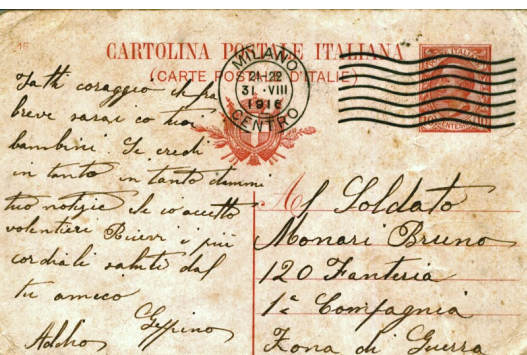 CARTOLINA POSTALE ITALIANA
(CARTE POSTALE D'ITALIE)
MILANO
21-22
31·VIII
1916
CENTRO
Fatti coraggio che fra
breve sarai co tuoi
bambini. Se credi
in tanto in tanto dammi
tuo notizie che io accetto
volentieri Ricevi i più
cordiali saluti dal
tu amico
Geppino
Addio
Al Soldato
Monari Bruno
120 Fanteria
1ª Compagnia
Zona di Guerra